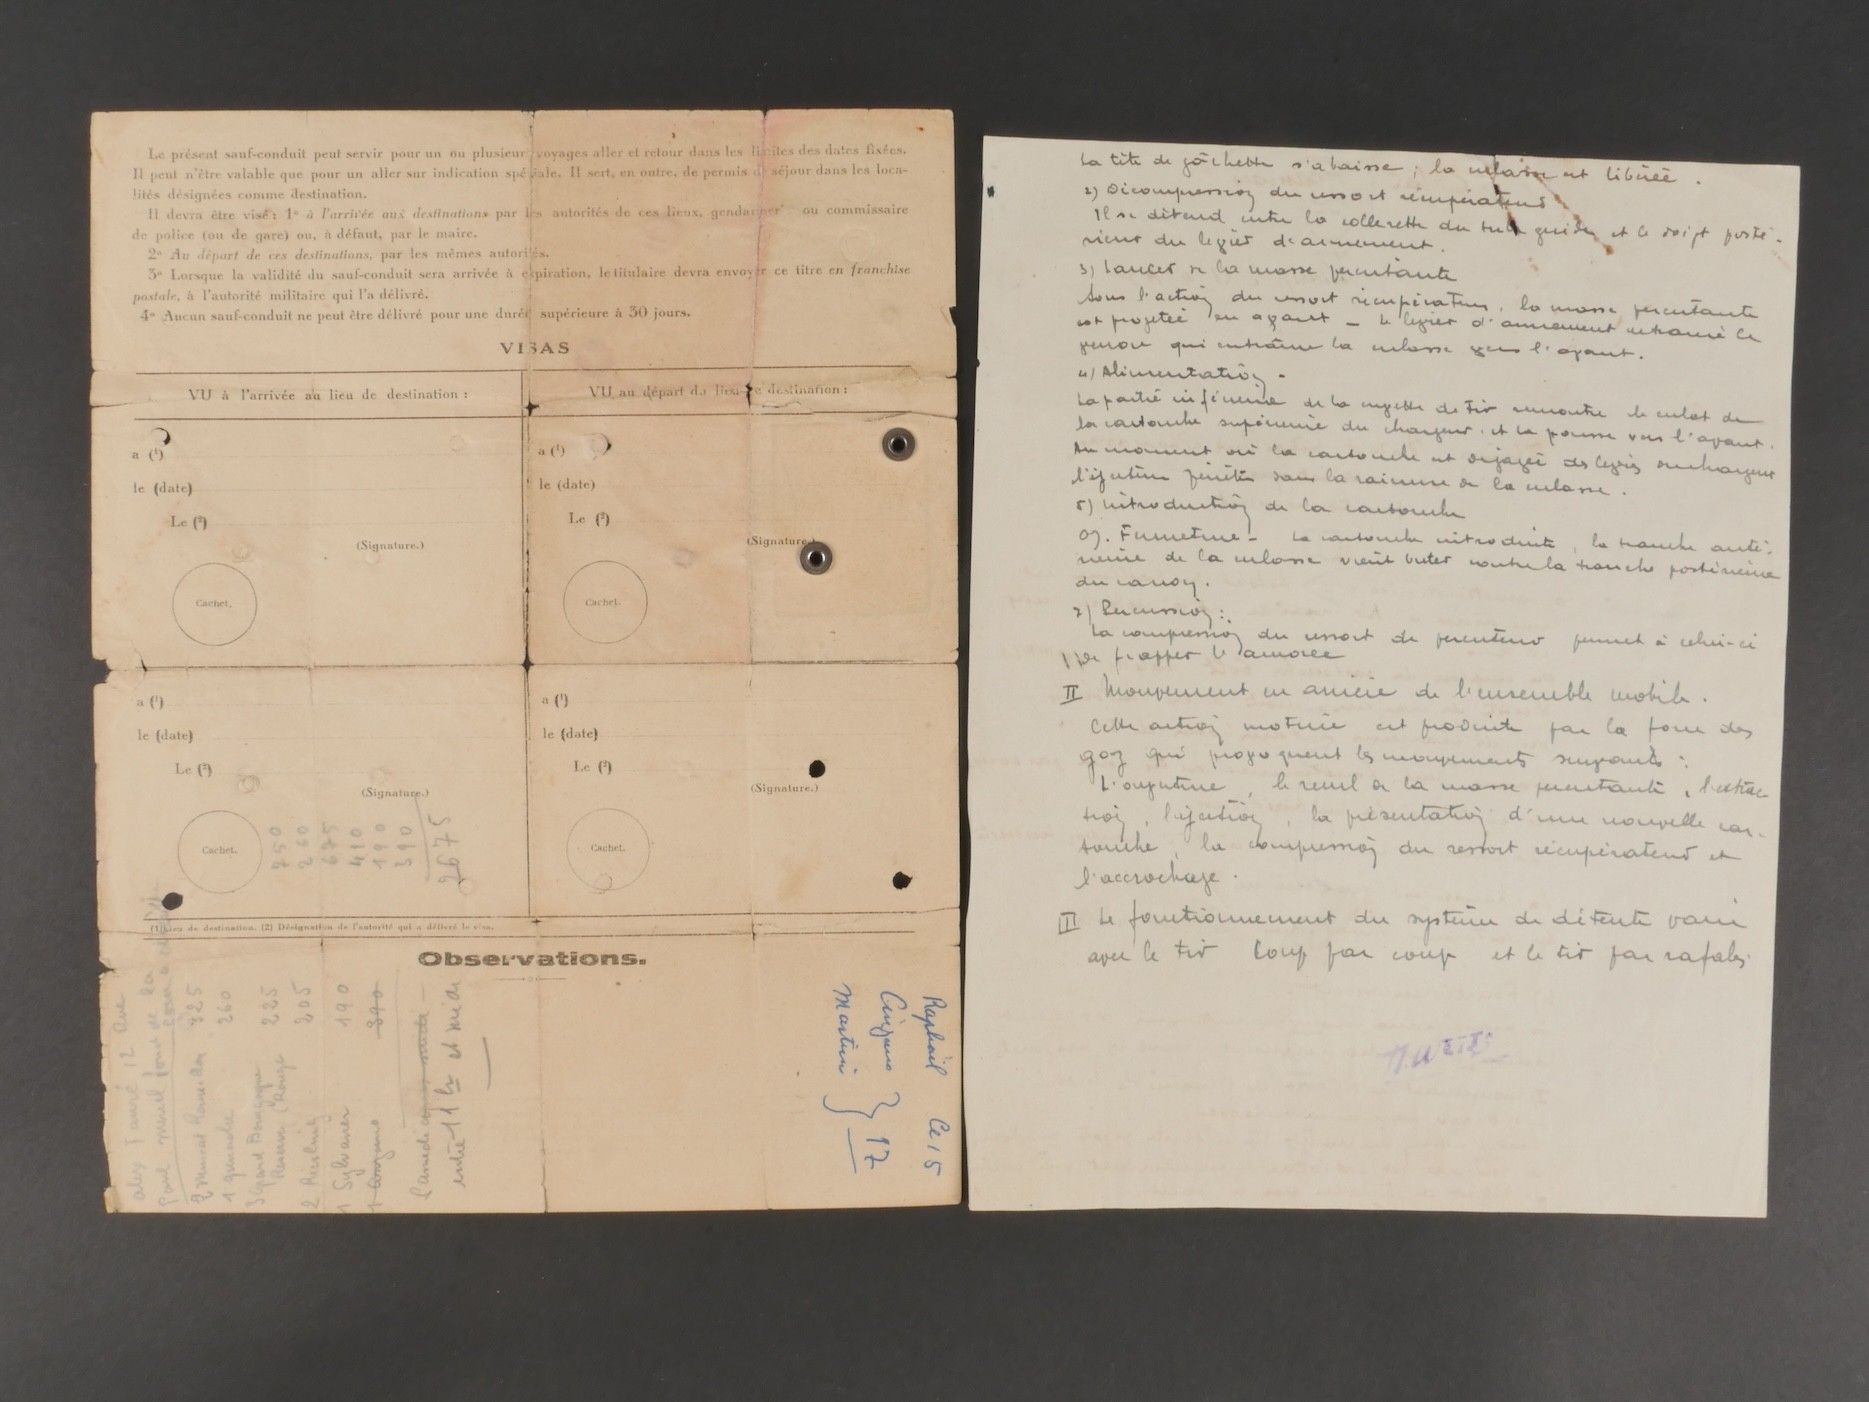 Le présent sauf-conduit peut servir pour un ou plusieurs voyages aller et retour dans les limites des dates fixées.
Il peut n'être valable que pour un aller sur indication spéciale. Il sert, en outre, de permis de séjour dans les loca-
lités désignées comme destination.
Il devra être visé : 1º à l'arrivée aux destinations par les autorités de ces lieux, gendarmer ou commissaire
de police (ou de gare) ou, à défaut, par le maire.
2º Au départ de ces destinations, par les mêmes autorités.
3º Lorsque la validité du sauf-conduit sera arrivée à expiration, le titulaire devra envoyer ce titre en franchise
postale, à l'autorité militaire qui l'a délivré.
4º Aucun sauf-conduit ne peut être délivré pour une durée supérieure à 30 jours.
VISAS
VU à l'arrivée au lieu de destination :
VU au départ du lieu de destination :
a (¹)
le (date)
Le (²)
(Signature.)
Cachet.
a (¹)
le (date)
Le (²)
(Signature.)
Cachet.
a (¹)
le (date)
Le (²)
(Signature.)
Cachet.
750
260
675
410
190
390
2675
a (¹)
le (date)
Le (²)
(Signature.)
Cachet.
(1) Lieu de destination. (2) Désignation de l'autorité qui a délivré le visa.
Observations.
Raphaël Ce 15
Cinzano
Martini } 17
325
1 260
Bourgogne 225
2 Riesling 205
1 Sylvaner 190
entre 11 h et midi
La tête de gâchette s'abaisse ; la culasse est libérée.
2) Décompression du ressort récupérateur
Il se détend entre la collerette du tube guide et le doigt posté-
rieur du levier d'armement.
3) Lancer de la masse percutante
Sous l'action du ressort récupérateur, la masse percutante
est projetée en avant - Le levier d'armement entraine le
verrou qui entraîne la culasse vers l'avant.
4) Alimentation -
La partie inférieure de la cuvette de tir rencontre le culot de
la cartouche supérieure du chargeur et la pousse vers l'avant.
Au moment où la cartouche est dégagée des lèvres du chargeur
l'éjecteur pénètre dans la rainure de la culasse.
5) Introduction de la cartouche
Fermeture - La cartouche introduite, la tranche anté-
rieure de la culasse vient buter contre la tranche postérieure
du canon.
7) Percussion :
La compression du ressort de percuteur permet à celui-ci
de frapper l'amorce
II Mouvement en arrière de l'ensemble mobile.
Cette action motrice est produite par la force des
gaz qui provoquent les mouvements suivants :
L'ouverture, le recul de la masse percutante, l'extrac-
tion, l'éjection, la présentation d'une nouvelle car-
touche, la compression du ressort récupérateur et
l'accrochage.
III Le fonctionnement du système de détente varie
avec le tir coup par coup et le tir par rafales.